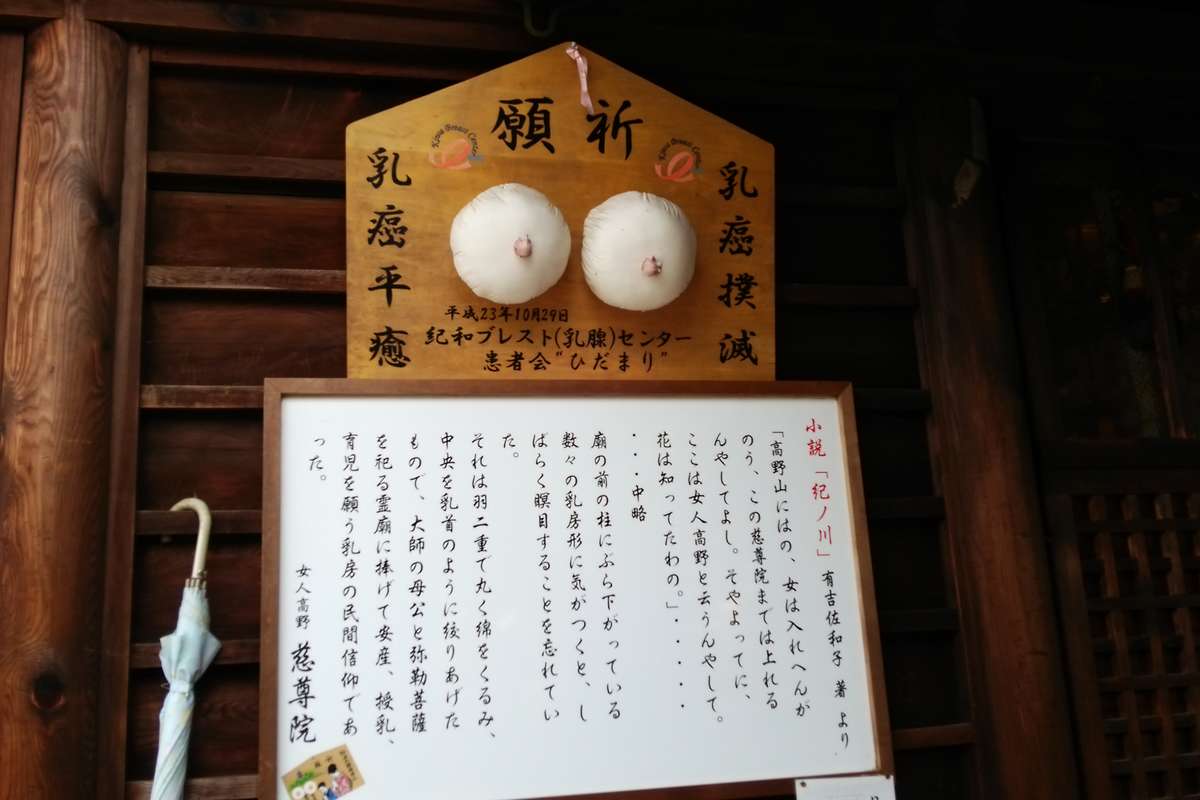 祈願
Kiwa Breast Center
Kiwa Breast Center
乳癌撲滅
乳癌平癒
平成23年10月29日
紀和ブレスト(乳腺)センター
患者会“ひだまり”
小説「紀ノ川」 有吉佐和子 著 より
「高野山にはの、女は入れへんが
のう、この慈尊院までは上れる
んやしてよし。そやよってに、
ここは女人高野と云うんやして。
花は知ってたわの。」・・・・・
・・・中略
廟の前の柱にぶら下がっている
数々の乳房形に気がつくと、し
ばらく瞑目することを忘れてい
た。
それは羽二重で丸く綿をくるみ、
中央を乳首のように絞りあげた
もので、大師の母公と弥勒菩薩
を祀る霊廟に捧げて安産、授乳、
育児を願う乳房の民間信仰であ
った。
女人高野 慈尊院